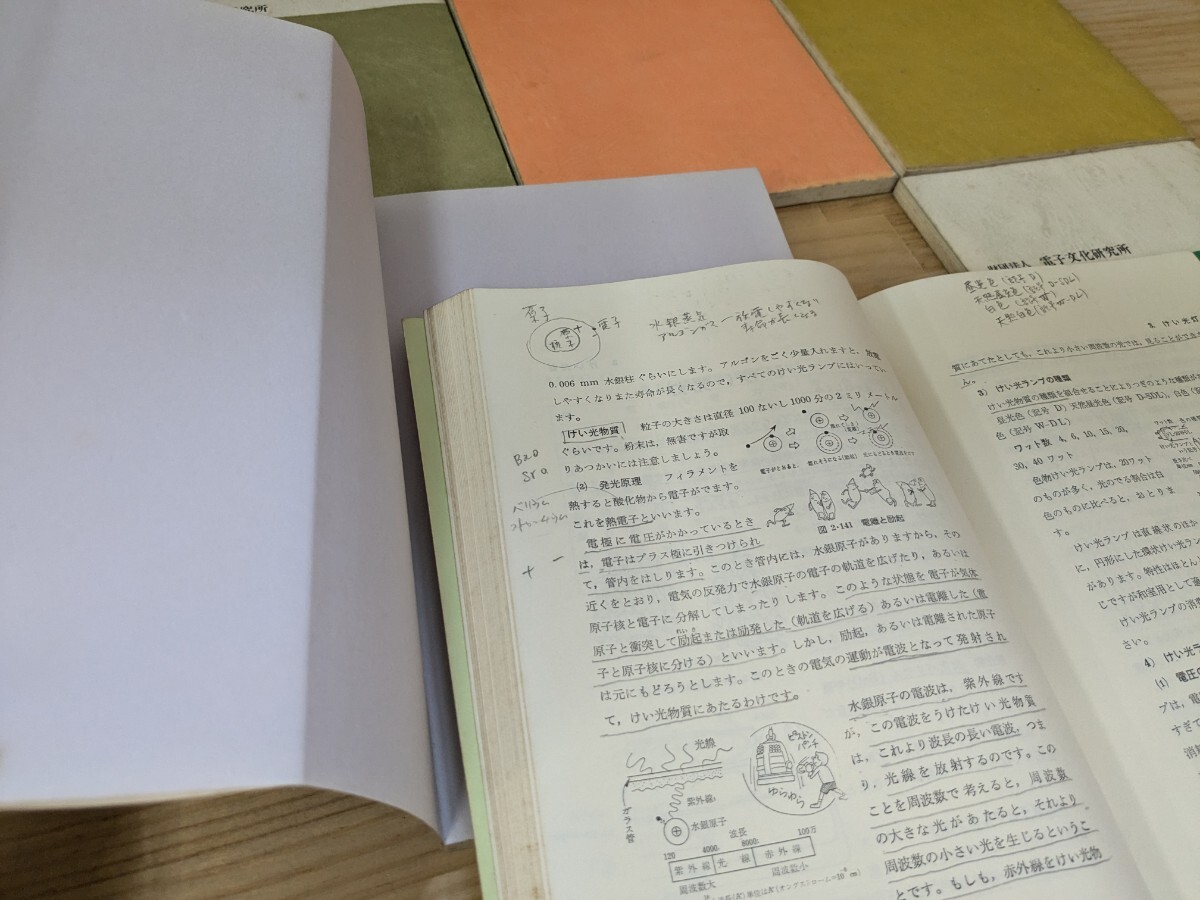 究所
財団法人 電子文化研究所
原子
電子
水銀蒸気
アルゴンガス ー 放電しやすくなり
寿命が長くなる
0.006 mm 水銀柱ぐらいにします。アルゴンをごく少量入れますと，放電
しやすくなりまた寿命が長くなるので，すべてのけい光ランプにはいってい
ます。
けい光物質 粒子の大きさは直径 100 ないし 1000 分の 2 ミリメートル
ぐらいです。粉末は，無害ですが取
りあつかいには注意しましょう。
BaO
SrO
(2) 発光原理 フィラメントを
熱すると酸化物から電子がでます。
これを熱電子といいます。
図 2-141 電離と励起
電極に電圧がかかっているとき
＋ －
は，電子はプラス極に引きつけられ
て，管内をはしります。このとき管内には，水銀原子がありますから，その
近くをとおり，電気の反発力で水銀原子の電子の軌道を広げたり，あるいは
原子核と電子に分解してしまったりします。このような状態を電子が気体
原子と衝突して励起または励発した（軌道を広げる）あるいは電離した（電
子と原子核に分ける）といいます。しかし，励起，あるいは電離された原子
は元にもどろうとします。このときの電気の運動が電波となって発射され
て，けい光物質にあたるわけです。
水銀原子の電波は，紫外線です
が，この電波をうけたけい光物質
は，これより波長の長い電波，つま
り，光線を放射するのです。この
ことを周波数で考えると，周波数
の大きな光があたると，それより
周波数の小さい光を生じるというこ
とです。もしも，赤外線をけい光物
光線
ピストン
パンチ
ゆらゆら
紫外線
ガラス管
水銀原子
波長
120 4000 8000 100万
紫外線 光線 赤外線
周波数大 周波数小
昼光色（記号 D）
天然昼光色（記号 D-SDL）
白色（記号 W）
天然白色（記号 W-DL）
3. けい光灯
質にあてたとしても，これより小さい周波数の光では，見ることが
ん。
3) けい光ランプの種類
けい光物質の種類を組合せることによりつぎのような種類が
昼光色（記号 D）天然昼光色（記号 D-SDL），白色（記
色（記号 W-DL）
ワット数 4, 6, 10, 15, 20,
30, 40 ワット
色物けい光ランプは，20ワット
のものが多く，光のでる割合は白
色のものに比べると，おとりま
す。
けい光ランプは直線状のほか
に，円形にした環状けい光ラン
があります。特性はほとん
じですが和室用として
けい光ランプの消
さい。
4) けい光ラ
(1) 電圧の
プは，電
すぎて
消